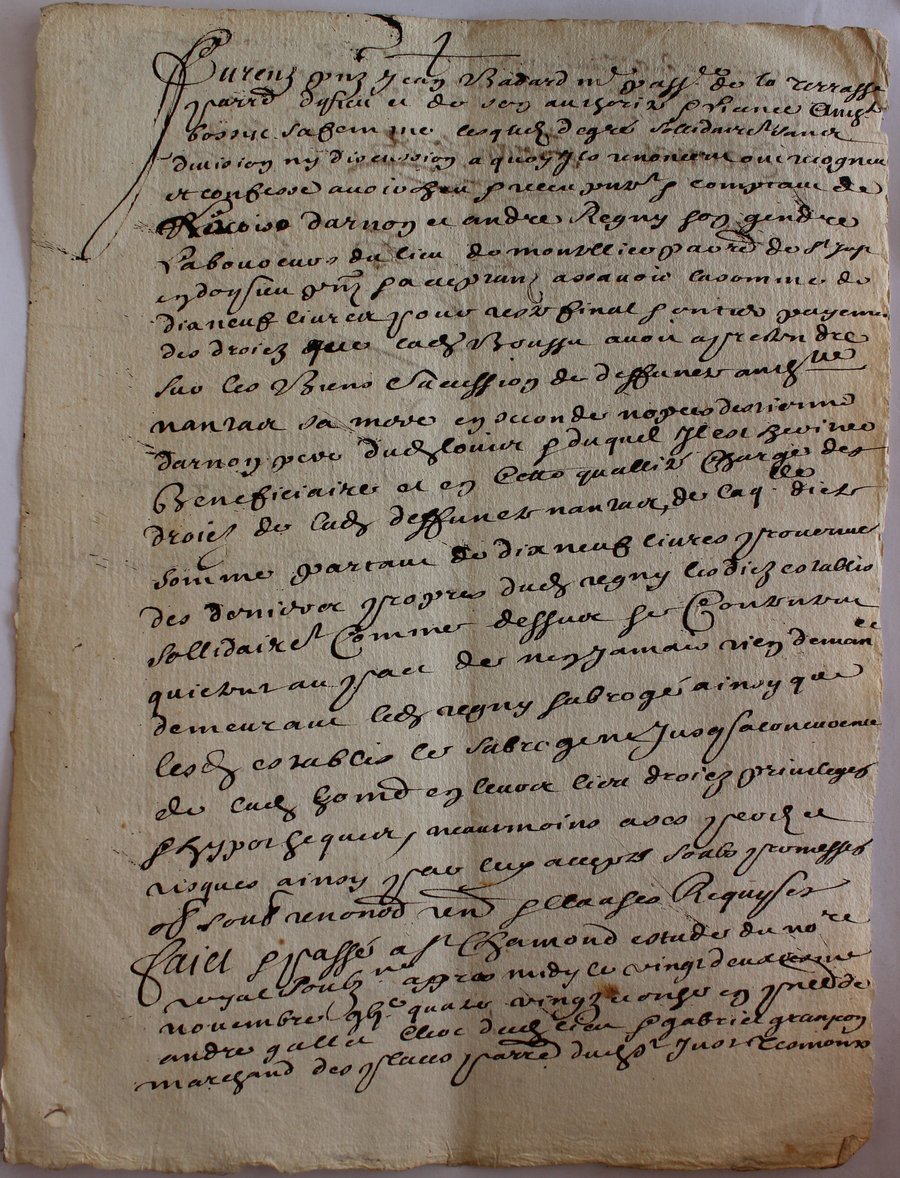 Furent pnt Jean Badard me pass. de la Terrasse
parr d'Isieu et de son authorité Pierrette
bossu sa femme lesquels de gré sollidairet sans
division ny discussion a quoy ils renoncent ont recogneu
et confesse avoir heu & receu pntt & comptant de
darnon et andre Regny son gendre
Laboureurs du lieu de montllier parr de St Jup
en doysieu pnt & acceptant asscavoir la somme de
dix neuf livres pour reste final & entier payement
des droictz que lad Boussu avoit a pretendre
sur les Biens & succession de deffuncte anthne
nantas sa mere en seconde nopces destienne
darnon pere dud louis & duquel Il est heritier
Beneficiaire et en cette quallité Chargé des
droictz de lad deffuncte nantas, de laqlle dicte
somme partant de dix neuf livres provenue
des deniers propres dud regny les dictz establis
sollidairet Comme dessus se Contentent
quictent au pact de n'en jamais rien demander
demeurant led regny subrogé ainsy que
lesd establis le subrogent Jusqs a concurrence
de lad somme en leurs lieu droictz privileges
& hypothecques, neantmoins a ses perilz et
risques ainsy par luy accepté soubs promesses
obl soub renond ren & clauses Requises
Faict & passé a St Chamond estude du nore
royal soubzne appres midy le vingt deuxieme
novembre gbc quatre vingtz & onze en pnce de
andre gallet clerc dud lieu & gabriel granjon
marchand des places parr dud St Just tesmoins